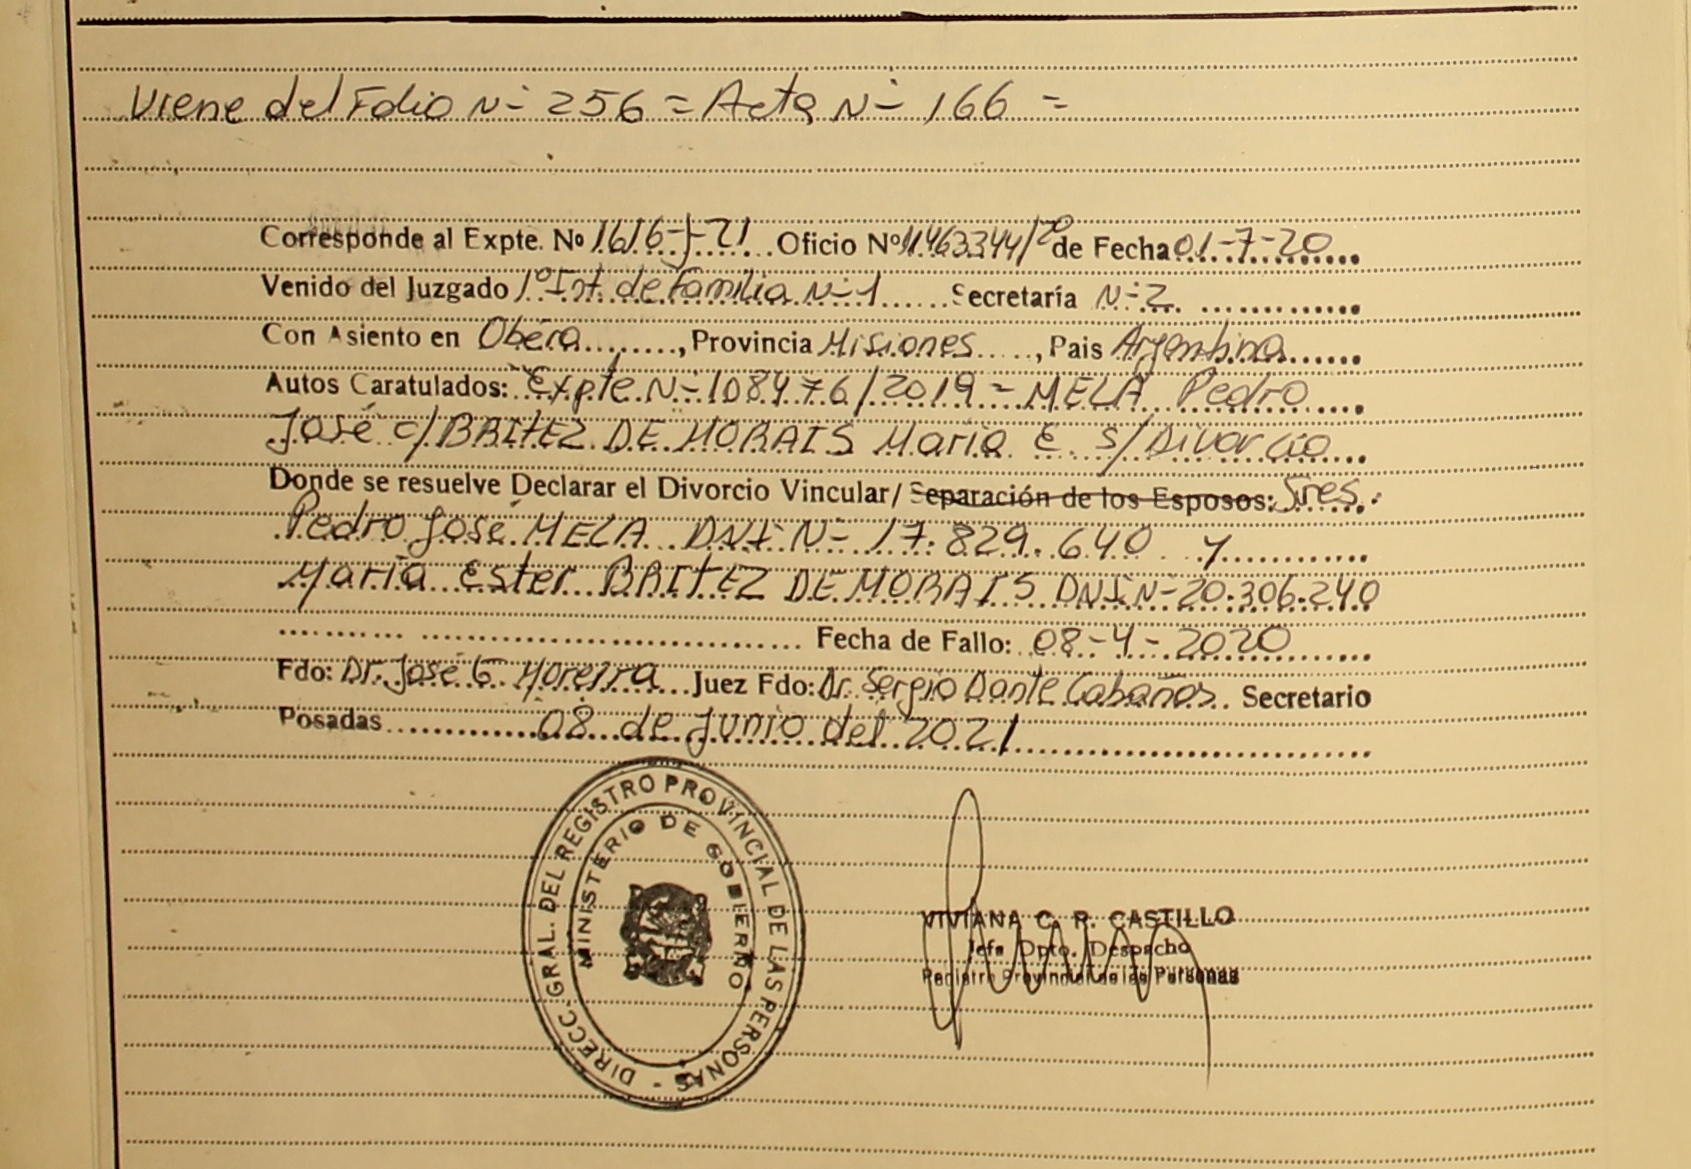 Viene del Folio Nº 256 = Acta Nº 166 =
Corresponde al Expte. Nº 1616-J-21 Oficio Nº 11463344/20 de Fecha 01-7-20
Venido del Juzgado 1º Inst. de Familia Nº 1 Secretaría Nº 2
Con Asiento en Oberá, Provincia Misiones, Pais Argentina
Autos Caratulados: Expte Nº 108476/2019 = MELA Pedro
José c/ BRITEZ DE MORAIS Maria E. s/ Divorcio
Donde se resuelve Declarar el Divorcio Vincular/ Separación de los Esposos: Sres.
Pedro José MELA DNI Nº 17.829.640 y
Maria Ester BRITEZ DE MORAIS DNI Nº 20.306.240
Fecha de Fallo: 08-4-2020
Fdo: Dr. José G Moreira Juez Fdo: Dr. Sergio Dante Cabañas Secretario
Posadas 08 de Junio del 2021
DIRECC. GRAL. DEL REGISTRO PROVINCIAL DE LAS PERSONAS -
MINISTERIO DE GOBIERNO
VIVIANA C. R. CASTILLO
Jefa Dpto. Despacho
Registro Provincial de las Personas